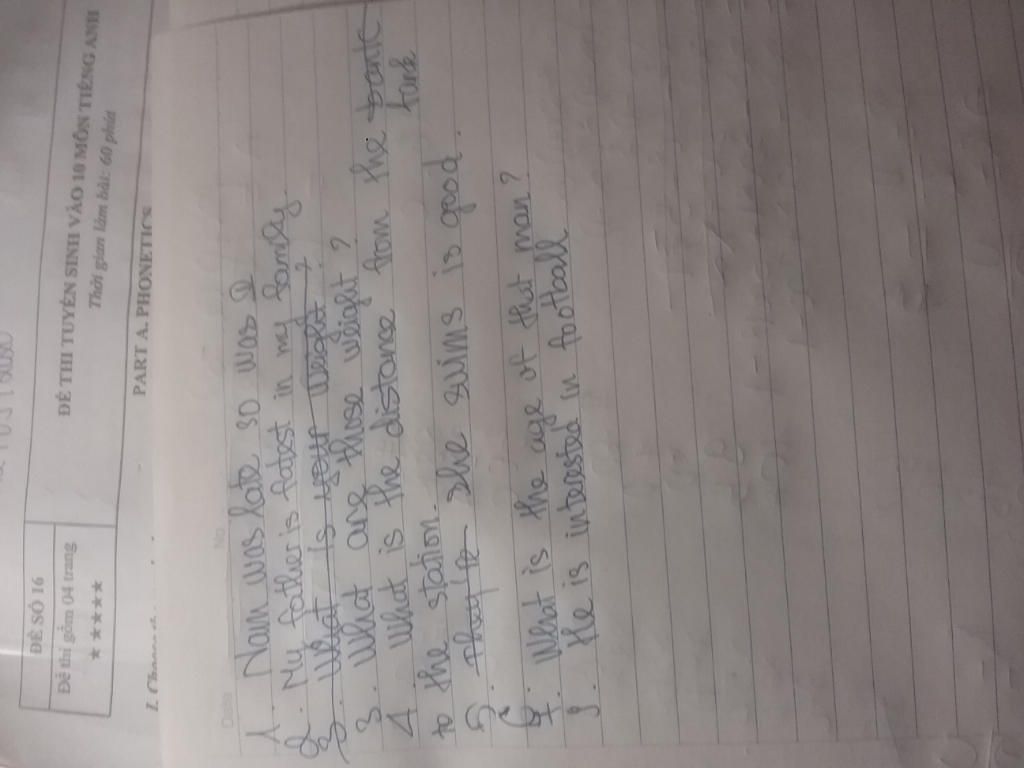 ĐỀ SỐ 16
Đề thi gồm 04 trang
★★★★★★
ĐỀ THI TUYỂN SINH VÀO 10 MÔN TIẾNG ANH
Thời gian làm bài: 60 phút
PART A. PHONETICS
Date
No
1. Nam was late so was I
2. My father is fatest in my family.
3. What is your weight ?
3. What are those weight ?
4. What is the distance from the bank
bank
to the station.
5. She swims is good.
6.
7. What is the age of that man?
9. He is interested in football